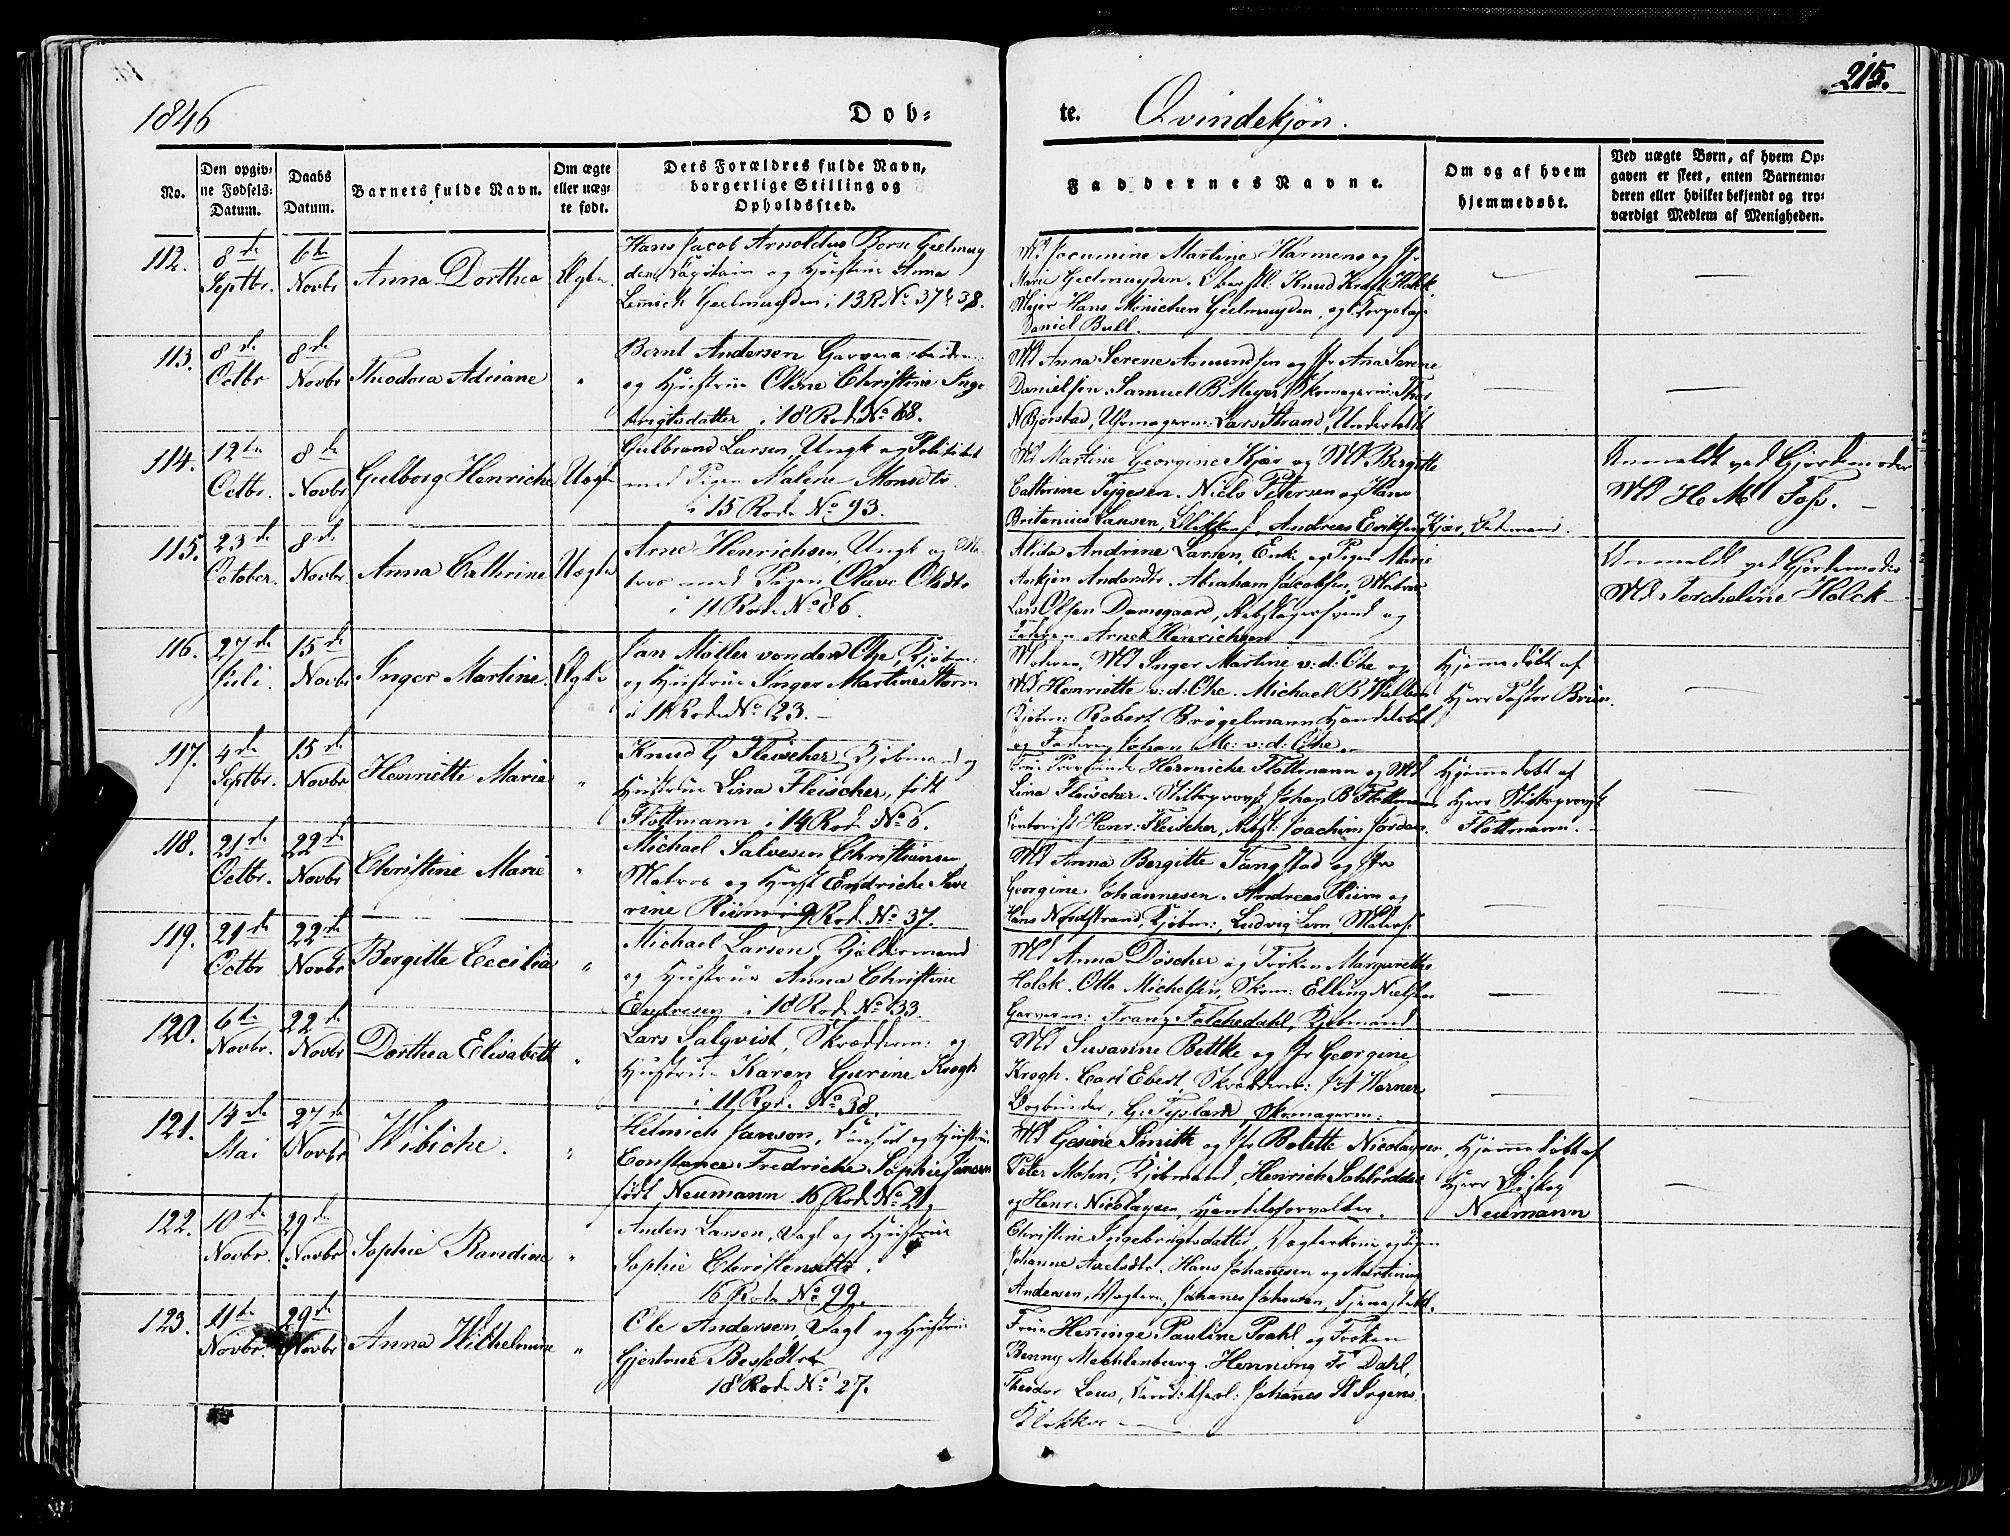 215.
1846
Dob-
te. Qvindekjøn.
No.
Den opgiv-
ne Fødsels-
Datum.
Daabs
Datum.
Barnets fulde Navn.
Om ægte
eller uæg-
te født.
Dets Forældres fulde Navn,
borgerlige Stilling og
Opholdssted.
Faddernes Navne.
Om og af hvem
hjemmedøbt.
Ved uægte Børn, af hvem Op-
gaven er skeet, enten Barnemo-
deren eller hvilket bekjendt og tro-
værdigt Medlem af Menigheden.
112.
8de
Septbr.
6te
Novbr
Anna Dorthea
Ægte
Hans Jacob Arnoldus Geelmuy
den, Capitain og Hustrue Anna
Geelmuyden i 13 R No 37 & 38.
Md Jocumine Martine Harmens og Jfr
Marie Geelmuyden. Knud Holck,
Major Hans Geelmuyden, og
Daniel Bull.
113.
8de
Octbr
8de
Novbr
Theodora Adriane
"
Bernt Andersen
og Hustrue Oline Christine Inge
brigtsdatter i 18 Rode No 68.
Md Anna Serene Asmundsen og Jfr Ana Serene
Danielsen. Samuel B Meyer, Skomagerm:
N Bjørstad, Lars Strand,
114.
12te
Octbr.
8de
Novbr
Gulborg Henriche
Uægte
Gulbrand Larsen, Ungk og
med Pigen Malene Monsdtr.
i 15 Rode No 93.
Md Martine Georgine Kjær og Md Bergitte
Cathrine Tygesen. Niels Petersen og Hans
Britanius Jansen, Andreas Eriksen Kjær,
Anmeldt ved Gjordemoder
Md H M Foss.
115.
23de
October.
8de
Novbr
Anna Cathrine
Uægte
Arne Henrichsen, Ungk og Ma
tros med Pigen Olave Olsdtr
i 11 Rode No 86.
Alida Andrine Larsen, Enke og Pigen Marie
Andersdtr. Abraham Jacobsen, Matros
Lars Olsen Damsgaard, og
Faderen Arne Henrichsen
Anmeldt ved Gjordemoder
Md Torcheline Holck
116.
27de
Juli.
15de
Novbr
Inger Martine.
Ægte
Jan Møller von der Ohe, Kjøbm:
og Hustrue Inger Martine Storm
i 11 Rode No 123.
Moderen, Md Inger Martine v: d: Ohe og
Md Henriette v: d: Ohe. Michael B
Kjøbm: Robert Brøgelmann Handelsbet
og Faderen Johan M: v: d: Ohe
Hjemmedøbt af
Herr Pastor Bruun.
117.
4de
Septbr.
15de
Novbr
Henriette Marie
"
Knud G Fleischer, Kjøbmand og
Hustrue Lina Fleischer, født
Flottmann i 14 Rode No 6.
Frue Hermiche Flottmann og Md
Lina Fleischer. Stiftsprovst Johan B Flottmann
Henr: Fleischer, Joachim Jordan.
Hjemmedøbt af
Herr Stiftsprovst
Flottmann.
118.
21de
Octbr.
22de
Novbr
Christine Marie
"
Michael Salvesen Christiansen
Matros og Hust Endriche Seve
rine i 9 Rode No 37.
Md Anna Bergitte Tangstad og Jfr
Georgine Johannesen. Andreas og
Hans Nordstrand, Kjøbm:, Ludvig
119.
21de
Octbr
22de
Novbr
Bergitte Cecilia
"
Michael Larsen, Kjeldermand
og Hustrue Anna Christine
Endresen i 18 Rode No 133.
Md Anna Döscher og Frøken Margarethe
Holck. Otto Michelsen, Skom: Elling Nielsen
Garverm: Franz Falchedahl, Kjøbmand
120.
6te
Novbr.
22de
Novbr
Dorthea Elisabeth
"
Lars Salqvist, Skrædderm: og
Hustrue Karen Gurine Krogh
i 11 Rode No 38.
Md Susanne Bettke og Jfr Georgine
Krogh. Carl Ebert, Skrædderm: J A Werner
Bogbinder, G. Tysland, Skomagerm:
121.
14de
Mai
27de
Novbr
Wibiche.
"
Helmich Janson, Consul og Hustrue
Constance Fredriche Sophie Janson
født Neumann. 16 Rode No 21.
Md Gesine Smitth og Jfr Bolette Nicolaysen.
Peter Moten, Kjøbmand, Henrich
og Henr: Nicolaysen, Handelsforvalter.
Hjemmedøbt af
Herr Biskop
Neumann
122.
10de
Novbr.
29de
Novbr
Sophie Randine
"
Anders Larsen, Vagt og Hustrue
Sophie Christensdtr.
16 Rode No 99.
Christine Ingebrigtsdatter, Vægterkone og Pigen
Johanne Axelsdtr. Hans Johannesen og Martinus
Andersen, Vægtere, Johanes Johnsen, Tjenestekl.
123.
11te
Novbr.
29de
Novbr
Anna Wilhelmine
"
Ole Andersen, Vagt og Hustrue
Gjertrue
18 Rode No 27.
Frue Pauline Dahl og Frøken
Benny Mechlenburg. Henning Fr Dahl,
Theodor Lous, Johannes St Jrgens
Klokker